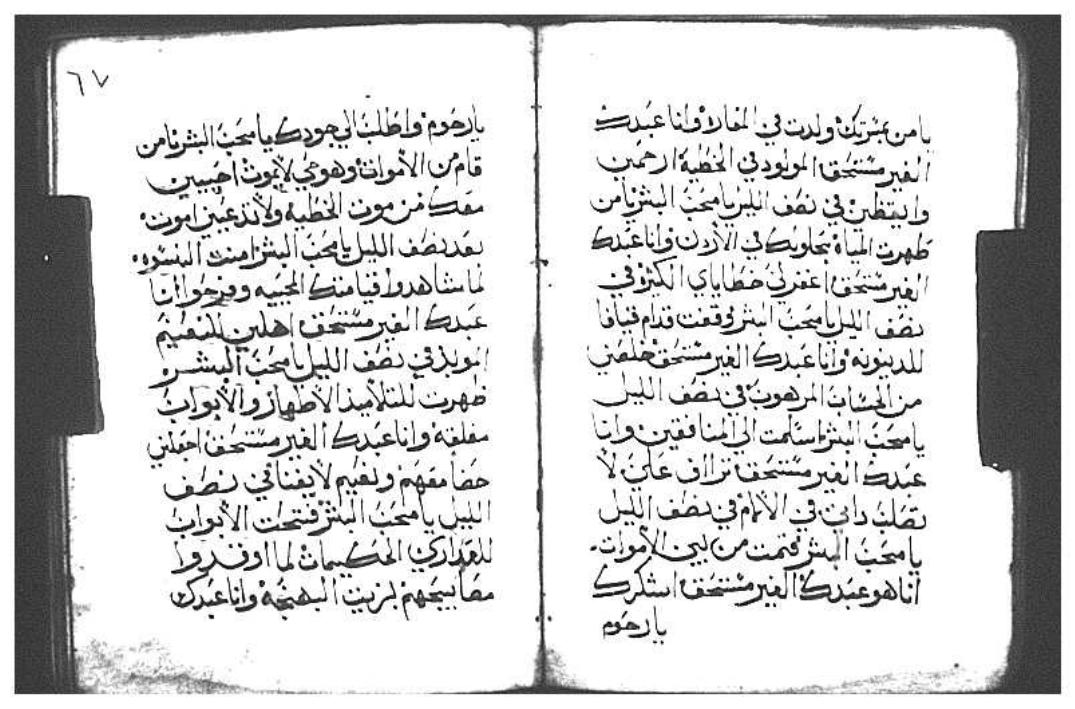 يا من بمسرتك ولدت في المغارة وانا عبدك
الغير مستحق المولود في الخطية ارحمني
وايقظني في نصف الليل يا محب البشر يا من
طهرت المياة بحلولك في الأردن وانا عبدك
الغير مستحق اغفر لي خطاياي الكثيرة في
نصف الليل يا محب البشر وقفت قدام قيافا
للدينونه وانا عبدك الغير مستحق خلصني
من الحساب المرهوب في نصف الليل
يا محب البشر اسلمت الي المنافقين وانا
عبدك الغير مستحق تراف علي لا
تصلب ذاتي في الألام في نصف الليل
يا محب البشر قمت من بين الأموات
أنا هو عبدك الغير مستحق اشكرك
يا رحوم
٦٧
يا رحوم واطلب الي جودك يا محب البشر يا من
قام من الأموات وهو حي لأيموت احييني
معك من موت الخطية ولأتدعني اموت
بعد نصف الليل يا محب البشر امنت النسوه
لما شاهدوا قيامتك المحييه وفرحوا أنا
عبدك الغير مستحق اهلني للنعيم
المويد في نصف الليل يا محب البشر
ظهرت للتلاميذ الأطهار والأبواب
مغلقة وانا عبدك الغير مستحق اجعلني
حضا معهم ونعيم لأيفنا في نصف
الليل يا محب البشر فتحت الأبواب
للعذاري الحكيمات لما اوقدوا
مصابيحهم بزيت البهجة وانا عبدك